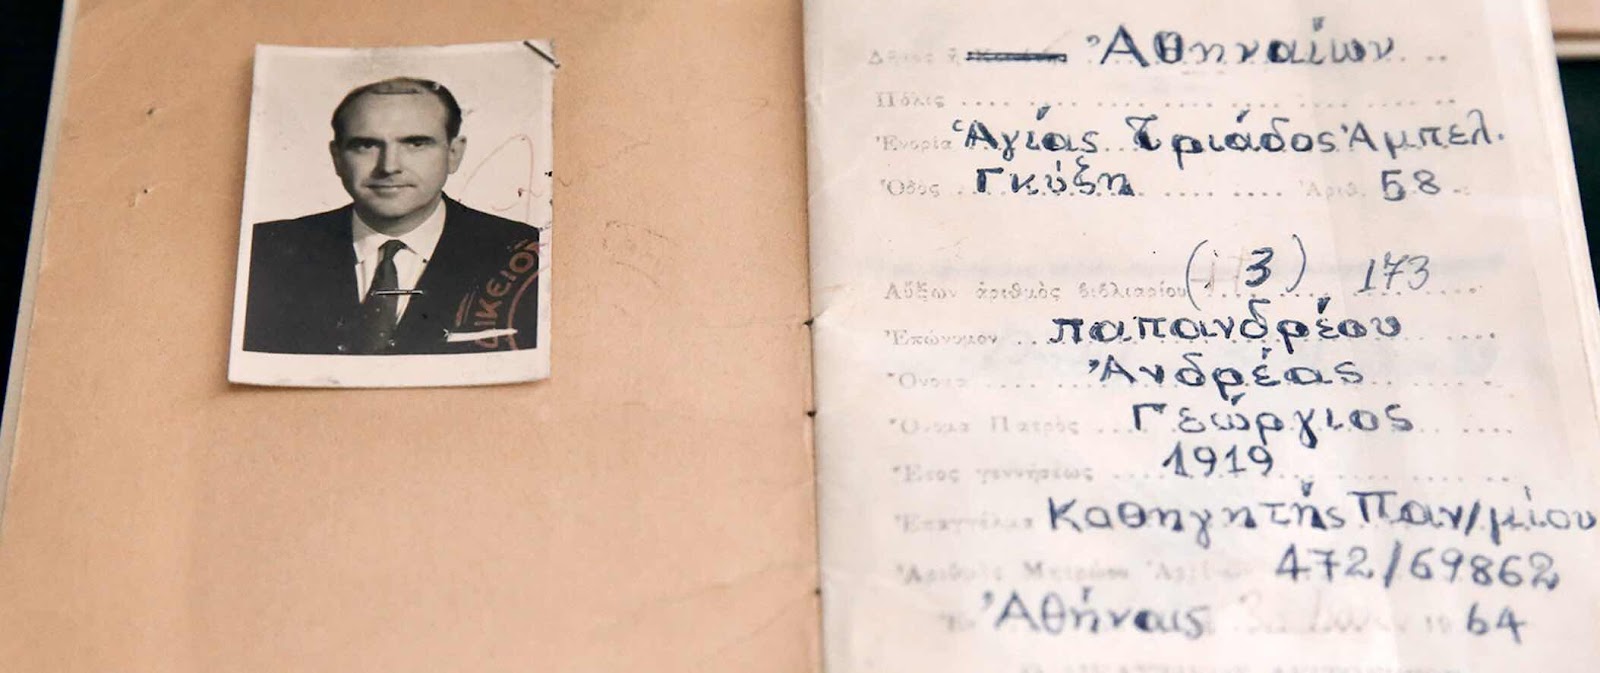 ΟΙΚΕΙΟΝ
Δῆμος ἤ Ἀθηναίων
Πόλις
Ἐνορία Ἁγίας Τριάδος Ἀμπελ.
Ὁδὸς Γκύζη Ἀριθ. 58
Αὔξων ἀριθμὸς βιβλιαρίου (173) 173
Ἐπώνυμον Παπανδρέου
Ὄνομα Ἀνδρέας
Ὄνομα Πατρὸς Γεώργιος
Ἔτος γεννήσεως 1919
Ἐπάγγελμα Καθηγητής Παν/μίου
Ἀριθμὸς Μητρώου 472/69862
Ἐν Ἀθήναις 1964